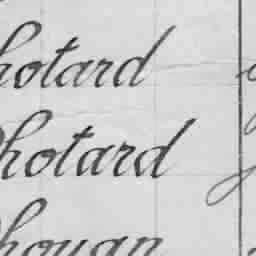 hotard
hotard
houan